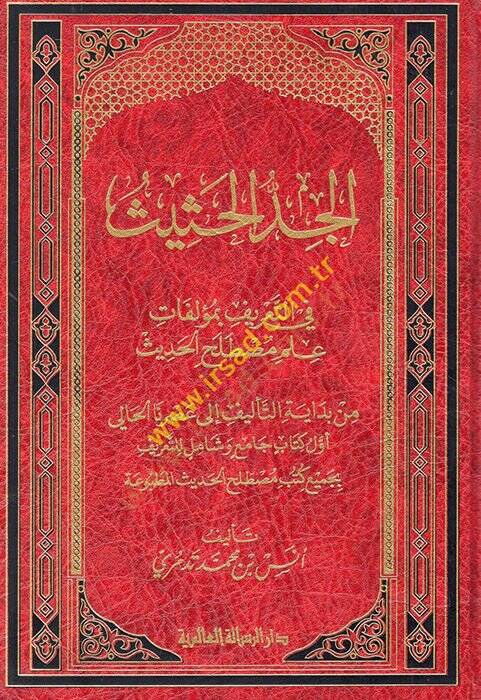 الجِدُّ الحَثِيثُ
في التَّعْرِيفِ بِمُؤَلَّفَاتِ
عِلْمِ مُصْطَلَحِ الحَدِيثِ
مِنْ بِدَايَةِ التَّأْلِيفِ إِلَى عَصْرِنَا الحَالِي
أَوَّلُ كِتَابٍ جَامِعٍ وَشَامِلٍ لِلتَّعْرِيفِ
بِجَمِيعِ كُتُبِ مُصْطَلَحِ الحَدِيثِ المَطْبُوعَةِ
تأليف
أنس بن محمد تدمري
دار الرسالة العالمية
www.irsad.com.tr